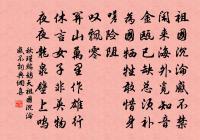 祖國沉淪感不禁
閑來海外覓知音
金甌已缺總須補
為國犧牲敢惜身
嗟險阻
嘆飄零
關山萬里作雄行
休言女子非英物
夜夜龍泉壁上鳴
秋瑾鷓鴣天祖國沉淪
感不禁詞典網